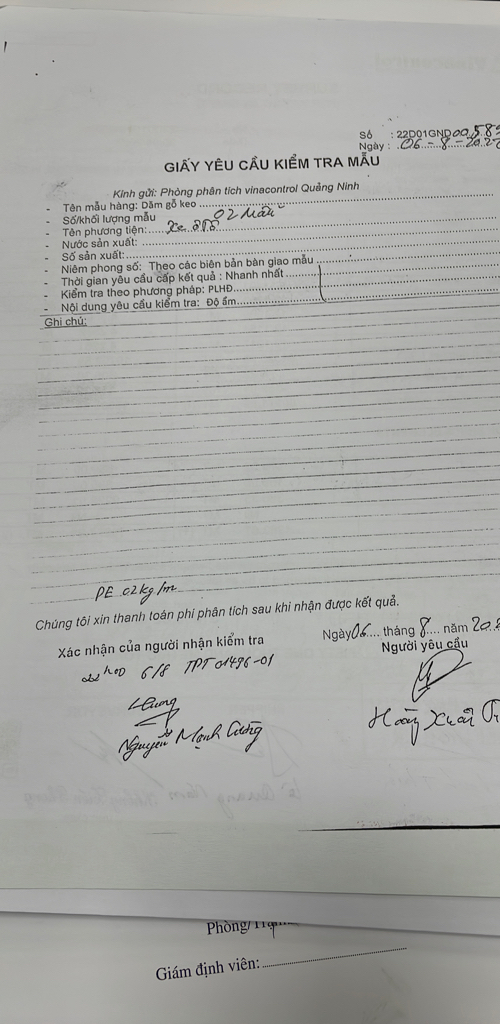 Số : 22D01GND00583
Ngày : 06 - 8 - 202
GIẤY YÊU CẦU KIỂM TRA MẪU
Kính gửi: Phòng phân tích vinacontrol Quảng Ninh
- Tên mẫu hàng: Dăm gỗ keo
- Số/khối lượng mẫu 02 Mẫu
- Tên phương tiện: Xe
- Nước sản xuất:
- Số sản xuất:
- Niêm phong số: Theo các biên bản bàn giao mẫu
- Thời gian yêu cầu cấp kết quả : Nhanh nhất
- Kiểm tra theo phương pháp: PLHĐ
- Nội dung yêu cầu kiểm tra: Độ ẩm
Ghi chú:
PE 02kg/m
Chúng tôi xin thanh toán phí phân tích sau khi nhận được kết quả.
Ngày 06 tháng 8 năm 202
Xác nhận của người nhận kiểm tra
Người yêu cầu
6/8 TPT01496-01
Nguyễn Mạnh Cường
Hoàng Xuân
Phòng/
Giám định viên: